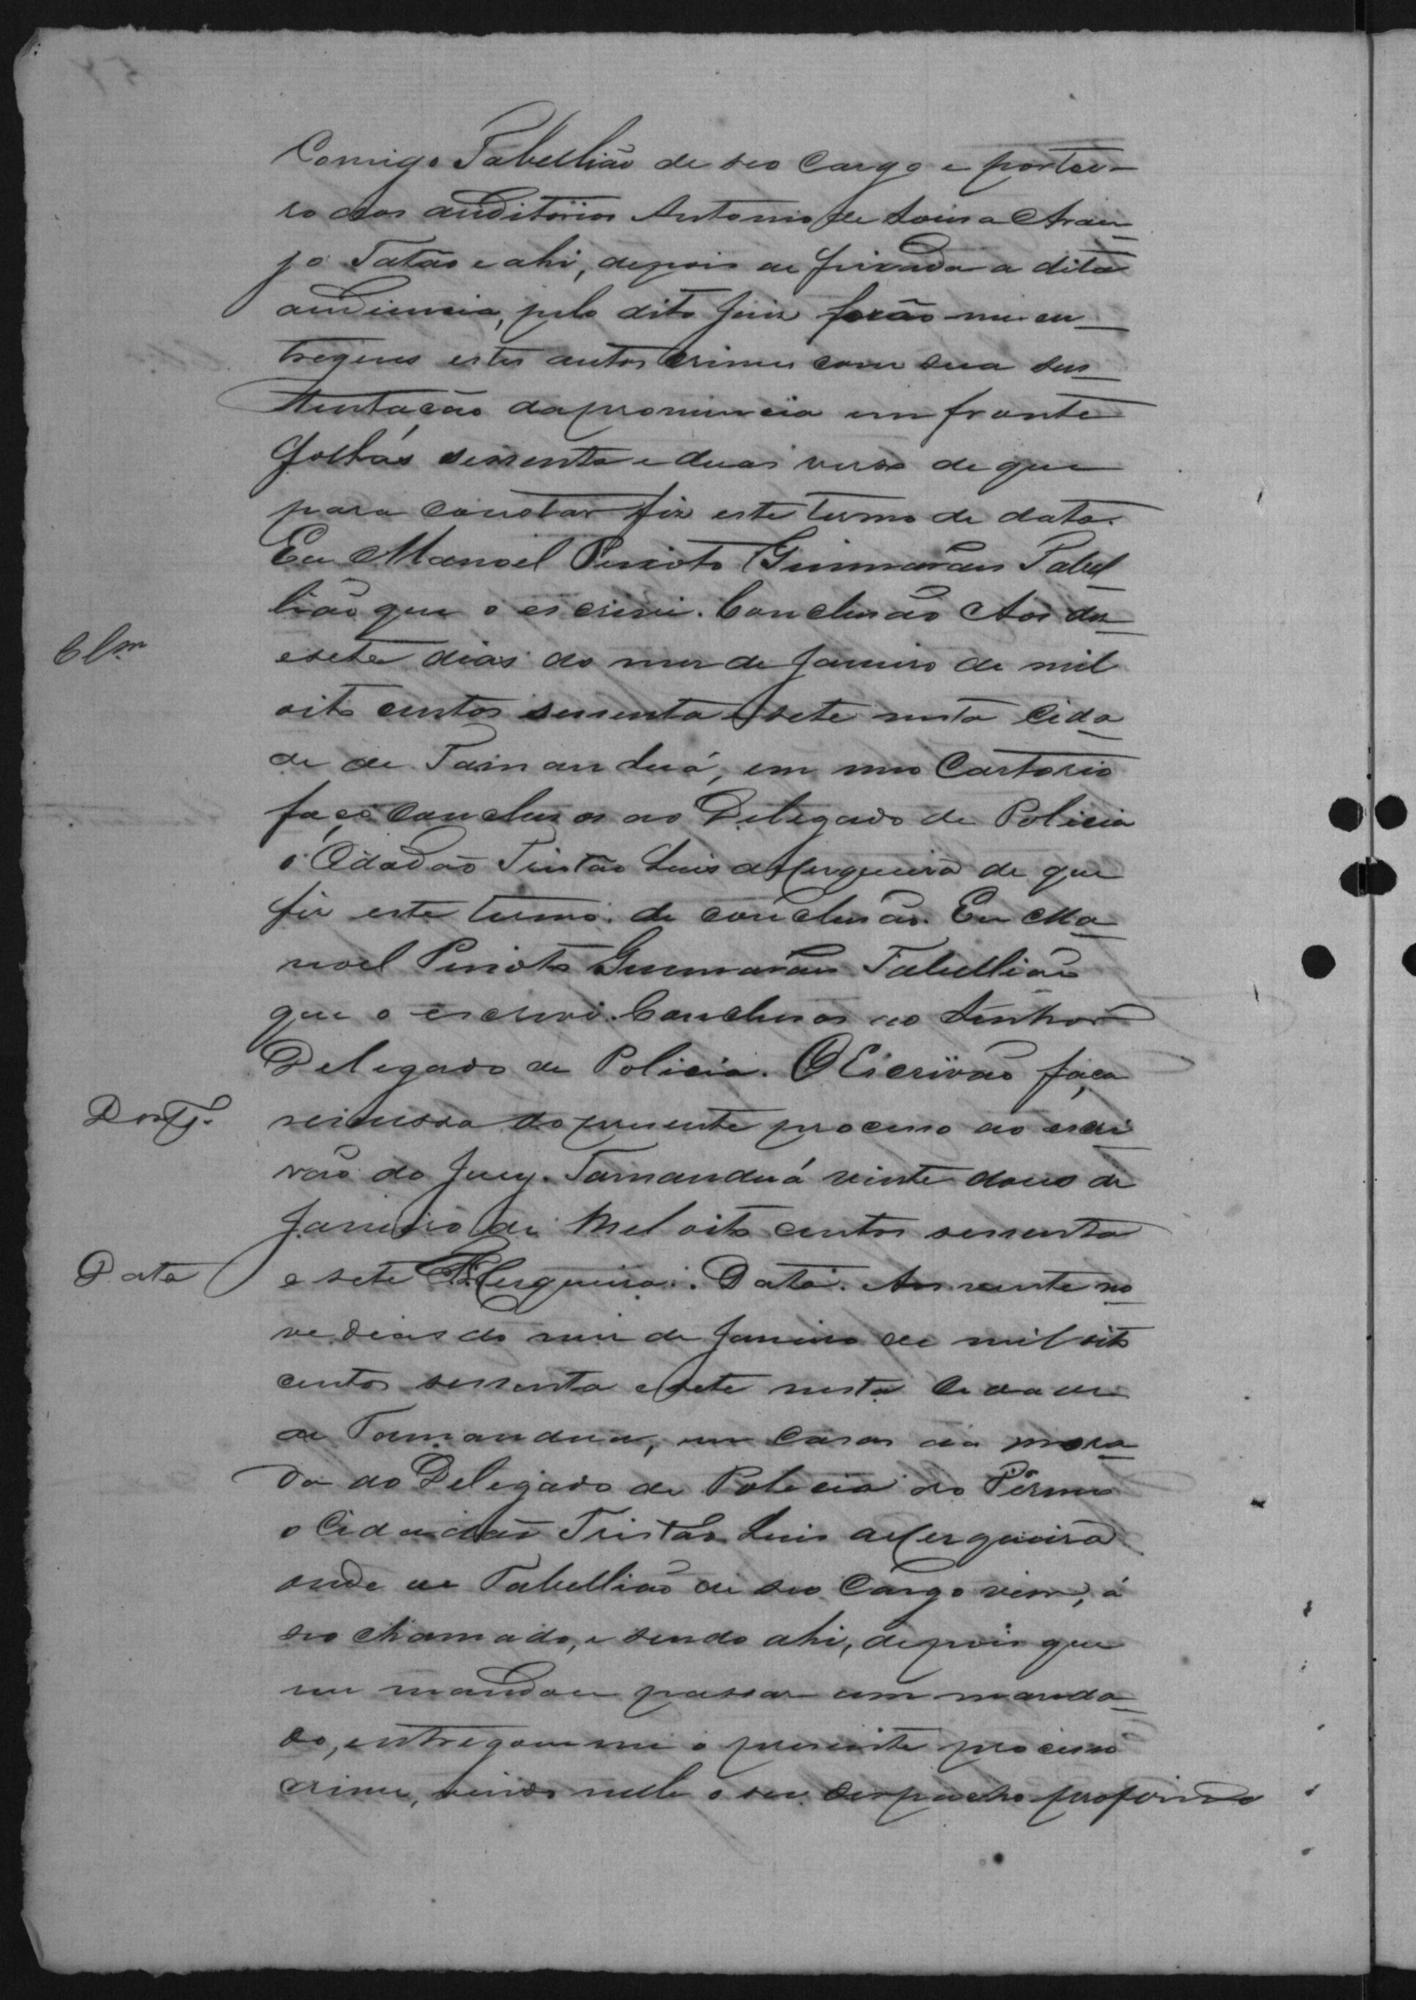 Comigo Tabellião de seo Cargo e portei-
ro dos auditorios Antonio de Sousa Arau-
jo Tatão e ahi, depois de finda a dita
audiencia, pelo dito Juiz forão me en-
tregues estes autos crimes com sua sus-
tentação da pronuncia em frente
folhás sessenta e duas verso de que
para constar fiz este termo de data.
Eu Manoel Peixoto Guimarães Tabel-
lião que o escrivi. Conclusão Aos des-
esete dias do mes de Janeiro de mil
Clm
oito centos sessenta e sete nesta Cida-
de de Tamanduá, em meo Cartorio
faço conclusos ao Delegado de Policia
o Cidadão Tristão Luis de Cerqueira de que
fiz este termo de conclusão. Eu Ma-
noel Peixoto Guimarães Tabellião
que o escrivi. Conclusos ao Senhor
Delegado de Policia. O Escrivão faça
remessa do presente processo ao escri-
vão do Jury. Tamanduá vinte dous de
Janeiro de Mil oito centos sessenta
Data
e sete Cerqueira. Data. Aos vinte no-
ve dias do mes de Janeiro de mil oito
centos sessenta e sete nesta Cidade
de Tamandua, em casas da mora-
da do Delegado de Policia do Termo
o Cidadão Tristão Luis de Cerqueira
onde eu Tabellião de seo Cargo vim, á
seo chamado, e sendo ahi, depois que
me mandou passar um manda-
do, entregou me o presente processo
crime, vindo nelle o seu despacho proferido